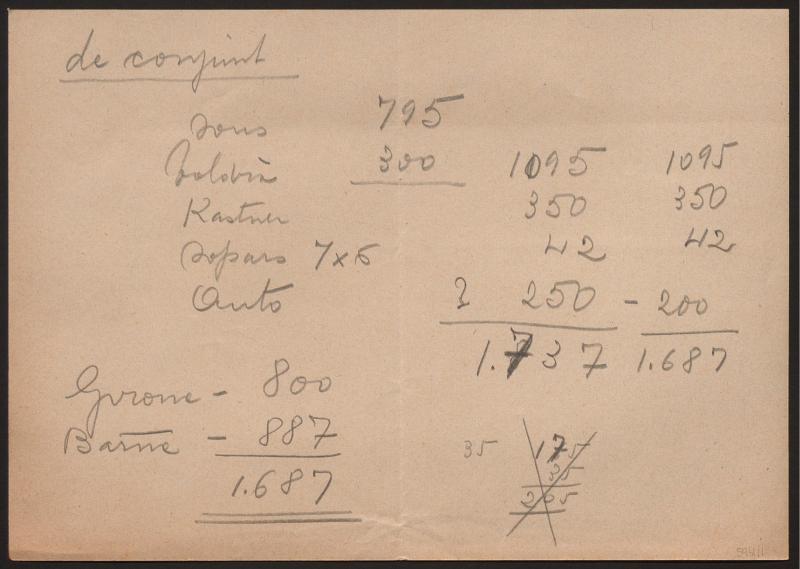 de conjunt
sous 795
300 1095 1095
Kastner 350 350
sopars 7x6 42 42
Auto 250 - 200
1.737 1.687
Gerone - 800
Barne - 887
1.687
35 175
35
205